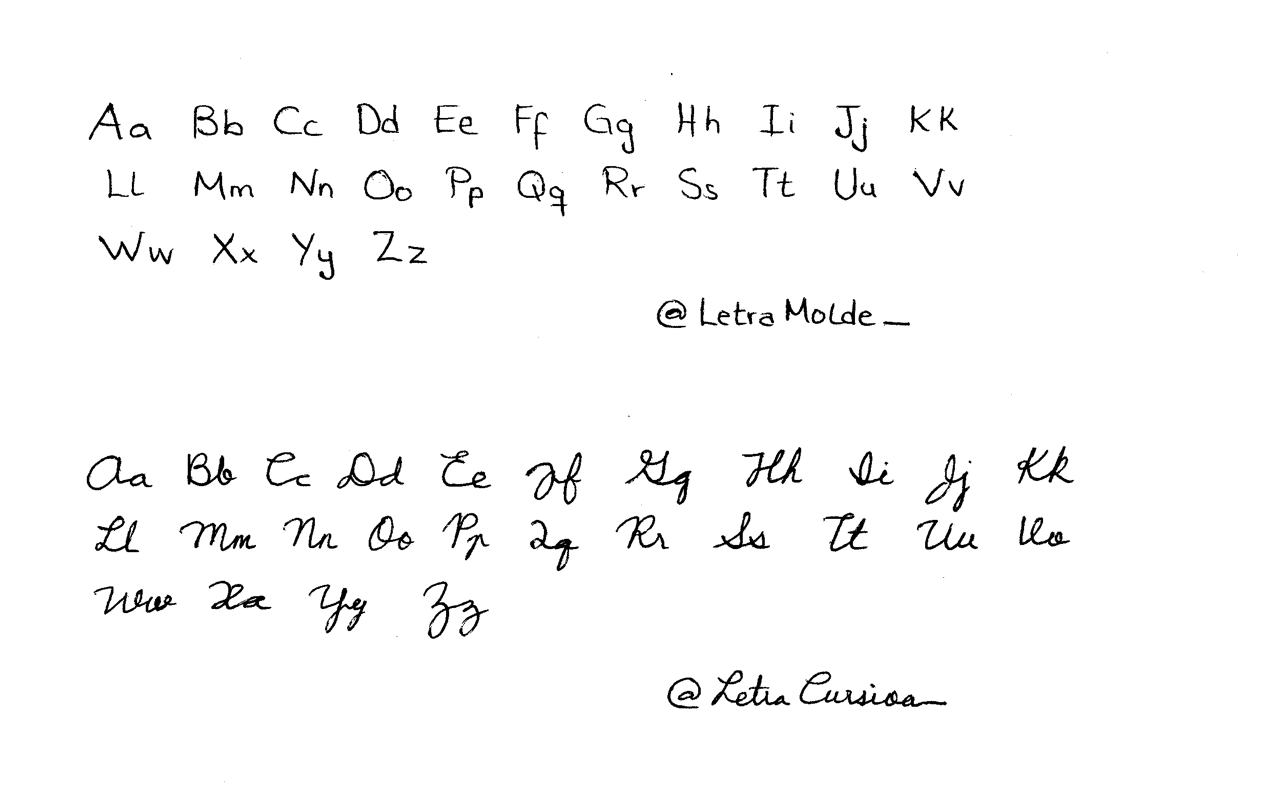 Aa Bb Cc Dd Ee Ff Gg Hh Ii Jj Kk
Ll Mm Nn Oo Pp Qq Rr Ss Tt Uu Vv
Ww Xx Yy Zz
@LetraMolde_
Aa Bb Cc Dd Ee Ff Gg Hh Ii Jj Kk
Ll Mm Nn Oo Pp Qq Rr Ss Tt Uu Vv
Ww Xx Yy Zz
@Letra Cursiva_